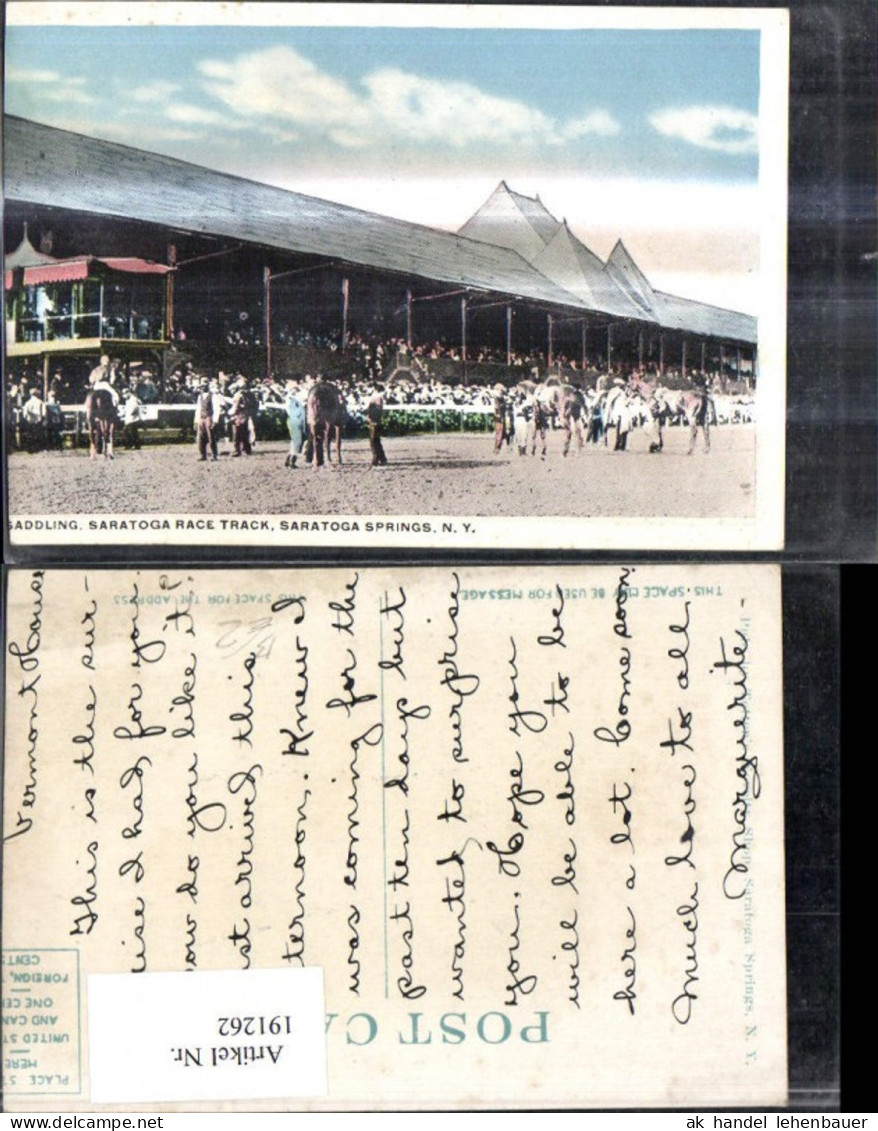 SADDLING, SARATOGA RACE TRACK, SARATOGA SPRINGS, N. Y.
THIS SPACE FOR THE ADDRESS
THIS SPACE MAY BE USED FOR MESSAGE
Vermont House
This is the sur-
ise I had, for you.
ow do you like it?
st arrived this
ternoon. Knew I
was coming for the
past ten days but
wanted to surprise
you. Hope you
will be able to be
here a lot. Come soon.
Much love to all.
Marguerite -
Saratoga Springs, N. Y.
POST CA
PLACE ST
HERE
UNITED ST
AND CAN
ONE CE
FOREIGN,
CENTS
Artikel Nr.
191262
ak handel lehenbauer